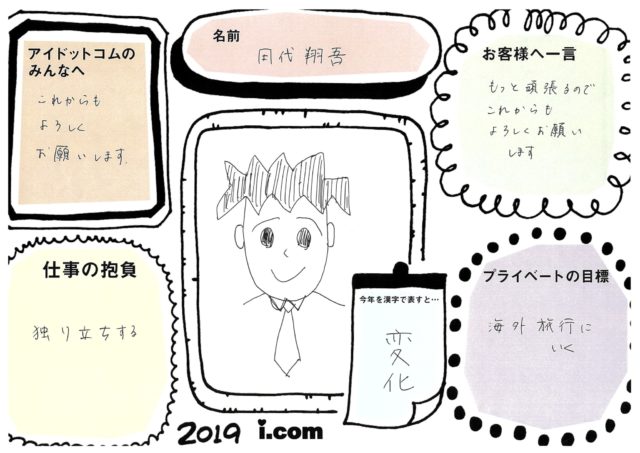 アイドットコムの
みんなへ
これからも
よろしく
お願いします.
名前
田代翔吾
お客様へ一言
もっと頑張るので
これからも
よろしくお願い
します
仕事の抱負
独り立ちする
今年を漢字で表すと…
変
化
プライベートの目標
海外旅行に
いく
2019 i.com